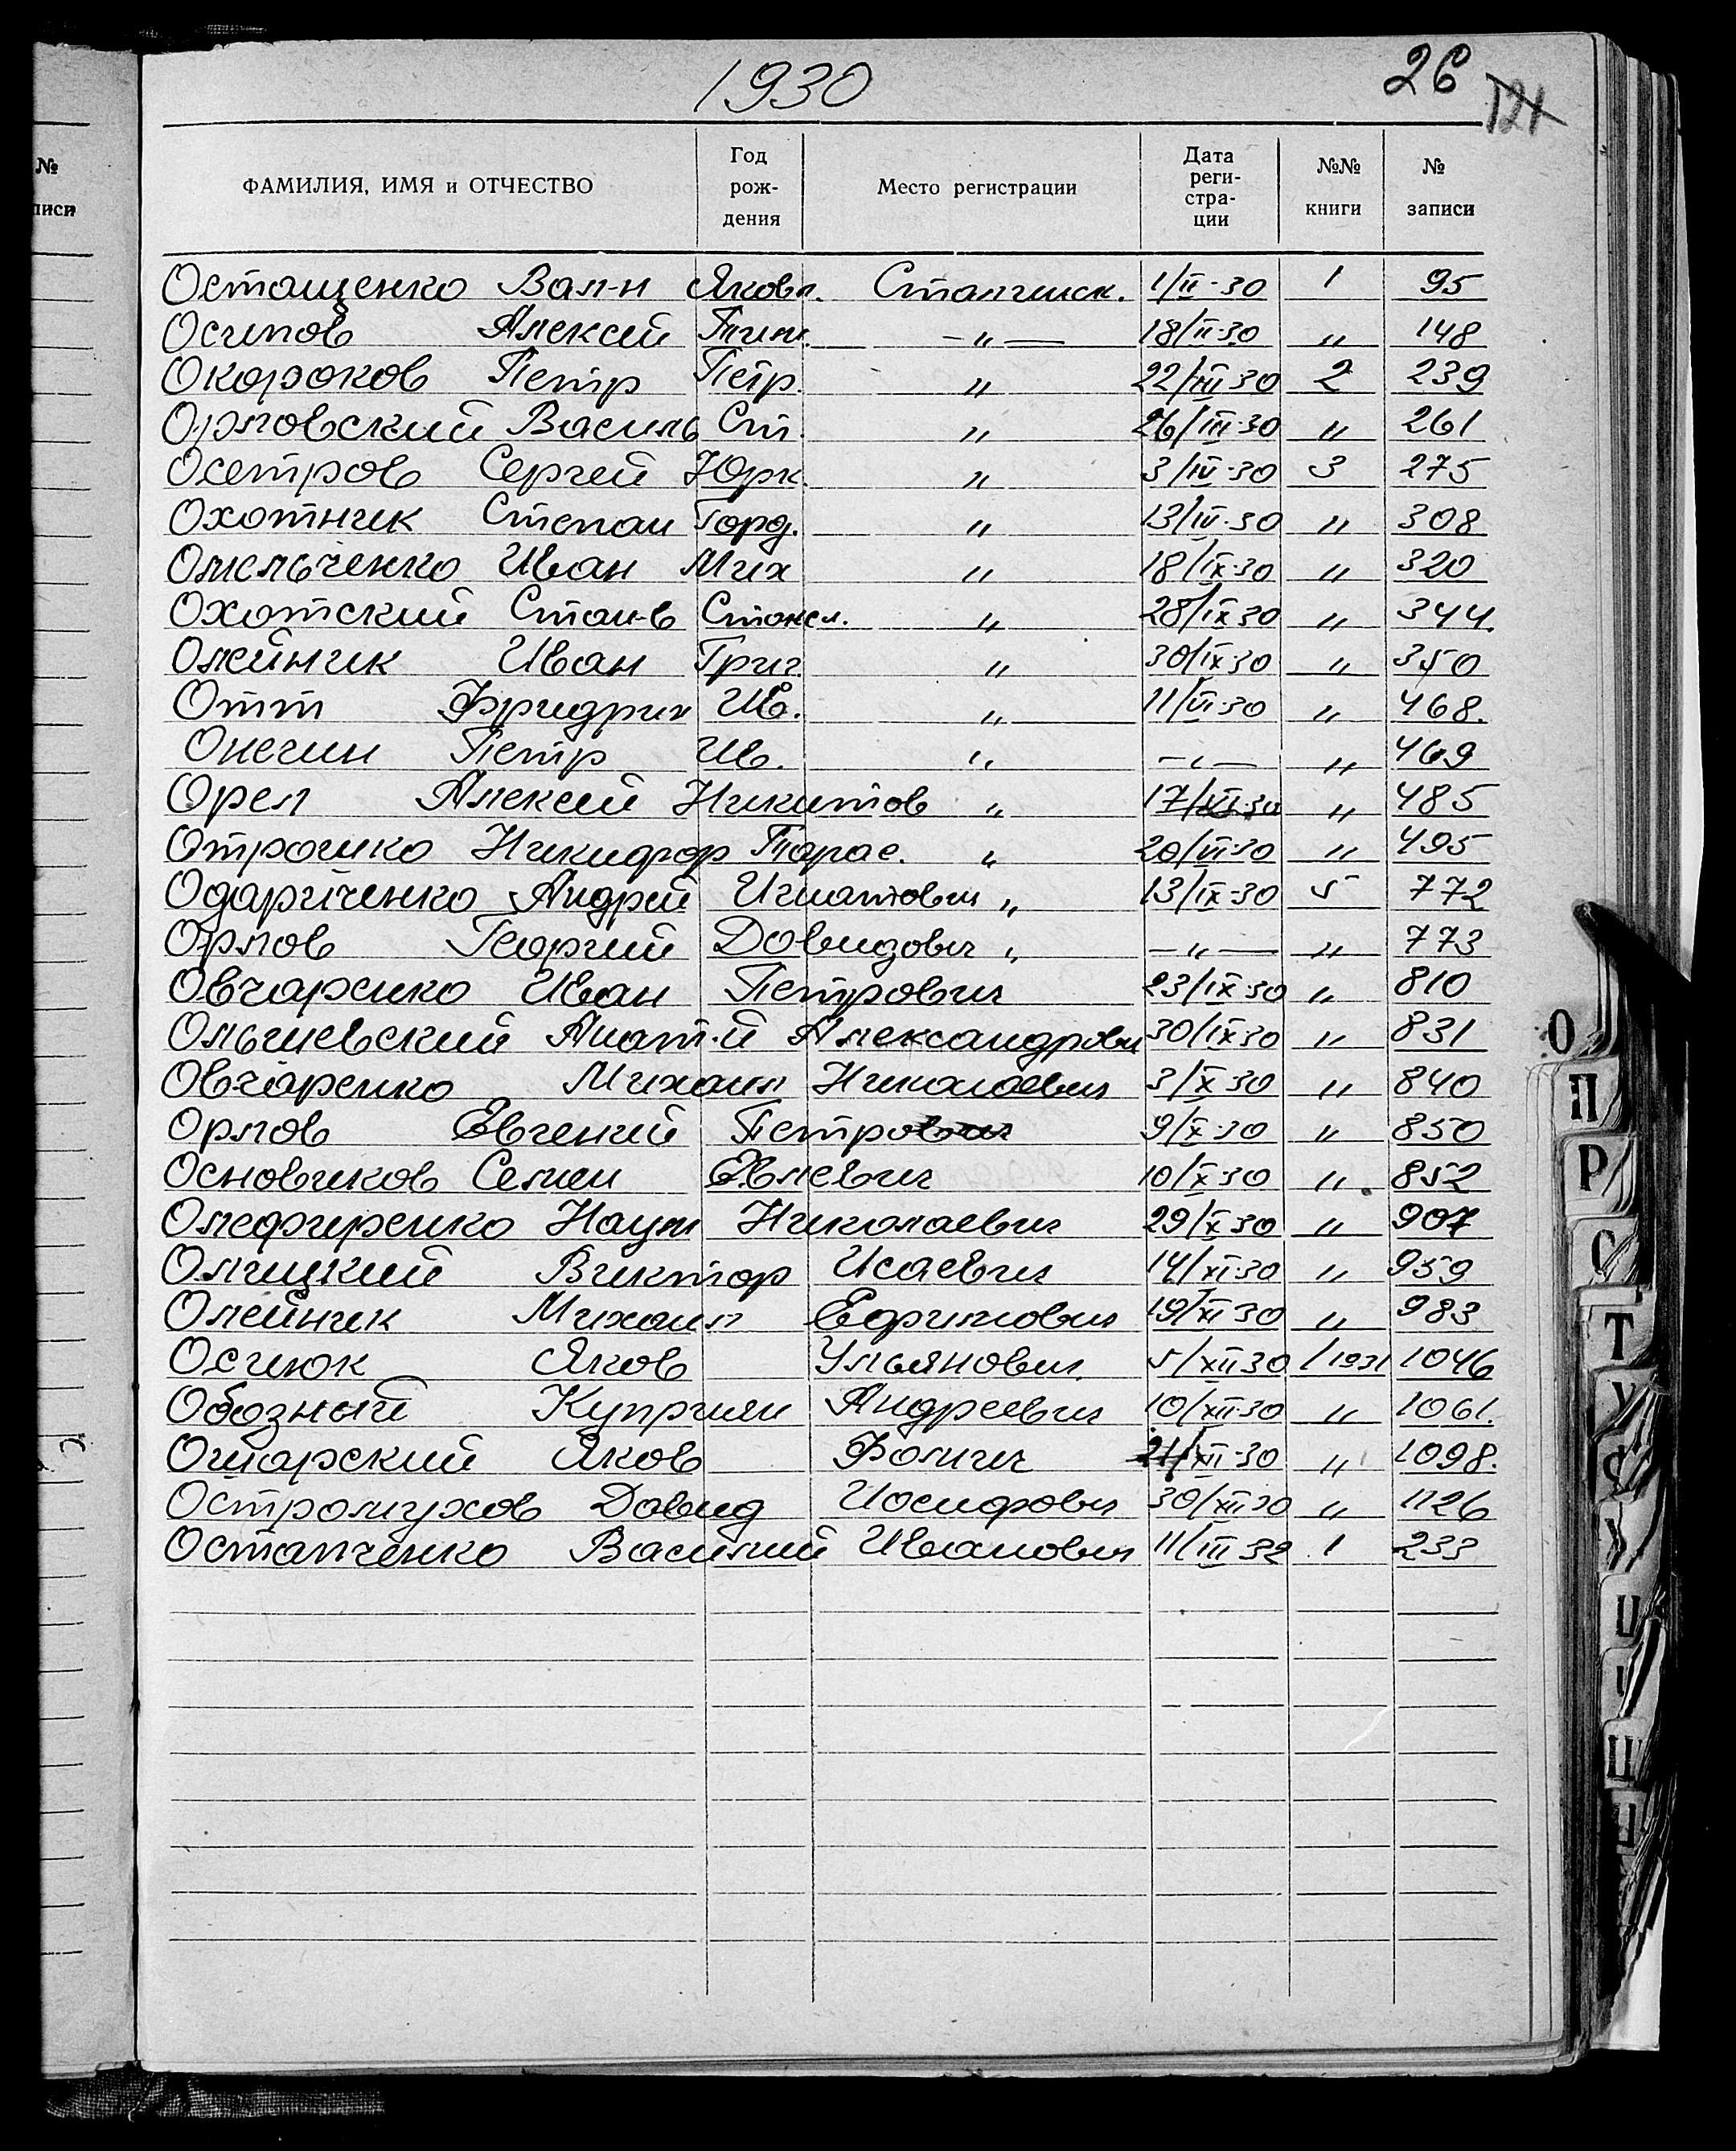 1930
26
121
№
писи
ФАМИЛИЯ, ИМЯ и ОТЧЕСТВО Год рож- дения Место регистрации Дата реги- стра- ции №№ книги № записи
Остащенко Вал-н Яковл. Сталинск. 1/II-30 1 95
Осипов Алексей Тим. -„- 18/II-30 „ 148
Окороков Петр Петр. „ 22/III 30 2 239
Орловский Василь Ст. „ 26/III-30 „ 261
Осетров Сергей Юрк. „ 3/IV-30 3 275
Охотник Степан Горд. „ 13/IV-30 „ 308
Омельченко Иван Мих „ 18/IX-30 „ 320
Охотский Стан-в Стансл. „ 28/IX 30 „ 344.
Олейник Иван Григ. „ 30/IX-30 „ 350
Отт Фридрих Ив. „ 11/VI-30 „ 468.
Онегин Петр Ив. „ -„- „ 469
Орел Алексей Никитов „ 17/VI-30 „ 485
Отрошко Никифор Тарас. „ 20/VI-30 „ 495
Одариченко Андрей Игнатович „ 13/IX-30 5 772
Орлов Георгий Давидович „ -„- „ 773
Овчаренко Иван Петрович 23/IX-30 „ 810
Ольшевский Анат-й Александрович 30/IX 30 „ 831
Овчаренко Михаил Николаевич 3/X-30 „ 840
Орлов Евгений Петрович 9/X-30 „ 850
Основиков Семен 10/X-30 „ 852
Олефиренко Наум Николаевич 29/X-30 „ 907
Олицкий Виктор Исаевич 14/XI-30 „ 959
Олейник Михаил Ефимович 19/XI 30 „ 983
Осиюк Яков Ульянович 5/XII 30 1/1931 1046
Обозный Куприян Андреевич 10/XII-30 „ 1061.
Яков Фомич 21/XII-30 „ 1098.
Остромухов Давид Иосифович 30/XII 30 „ 1126
Остапченко Василий Иванович 11/III 32 1 233
О
П
Р
С
Т
У
Ц
Ш